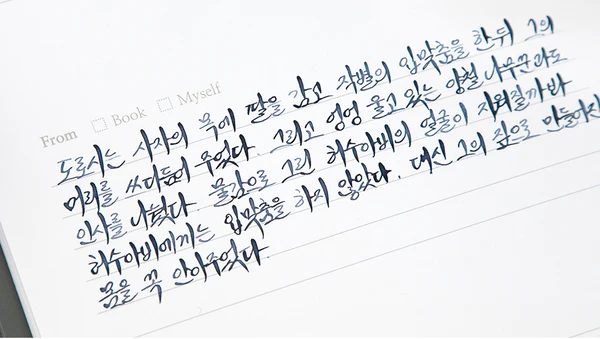 From □ Book □ Myself
도로시는 사자의 목에 팔을 감고 작별의 입맞춤을 한뒤 그의
머리를 쓰다듬어 주었다. 그리고 엉엉 울고 있는 양철 나무꾼과도
인사를 나눴다. 물감으로 그린 허수아비의 얼굴이 지워질까봐
허수아비에게는 입맞춤을 하지 않았다. 대신 그의 짚으로 만들어진
몸을 꼭 안아주었다.